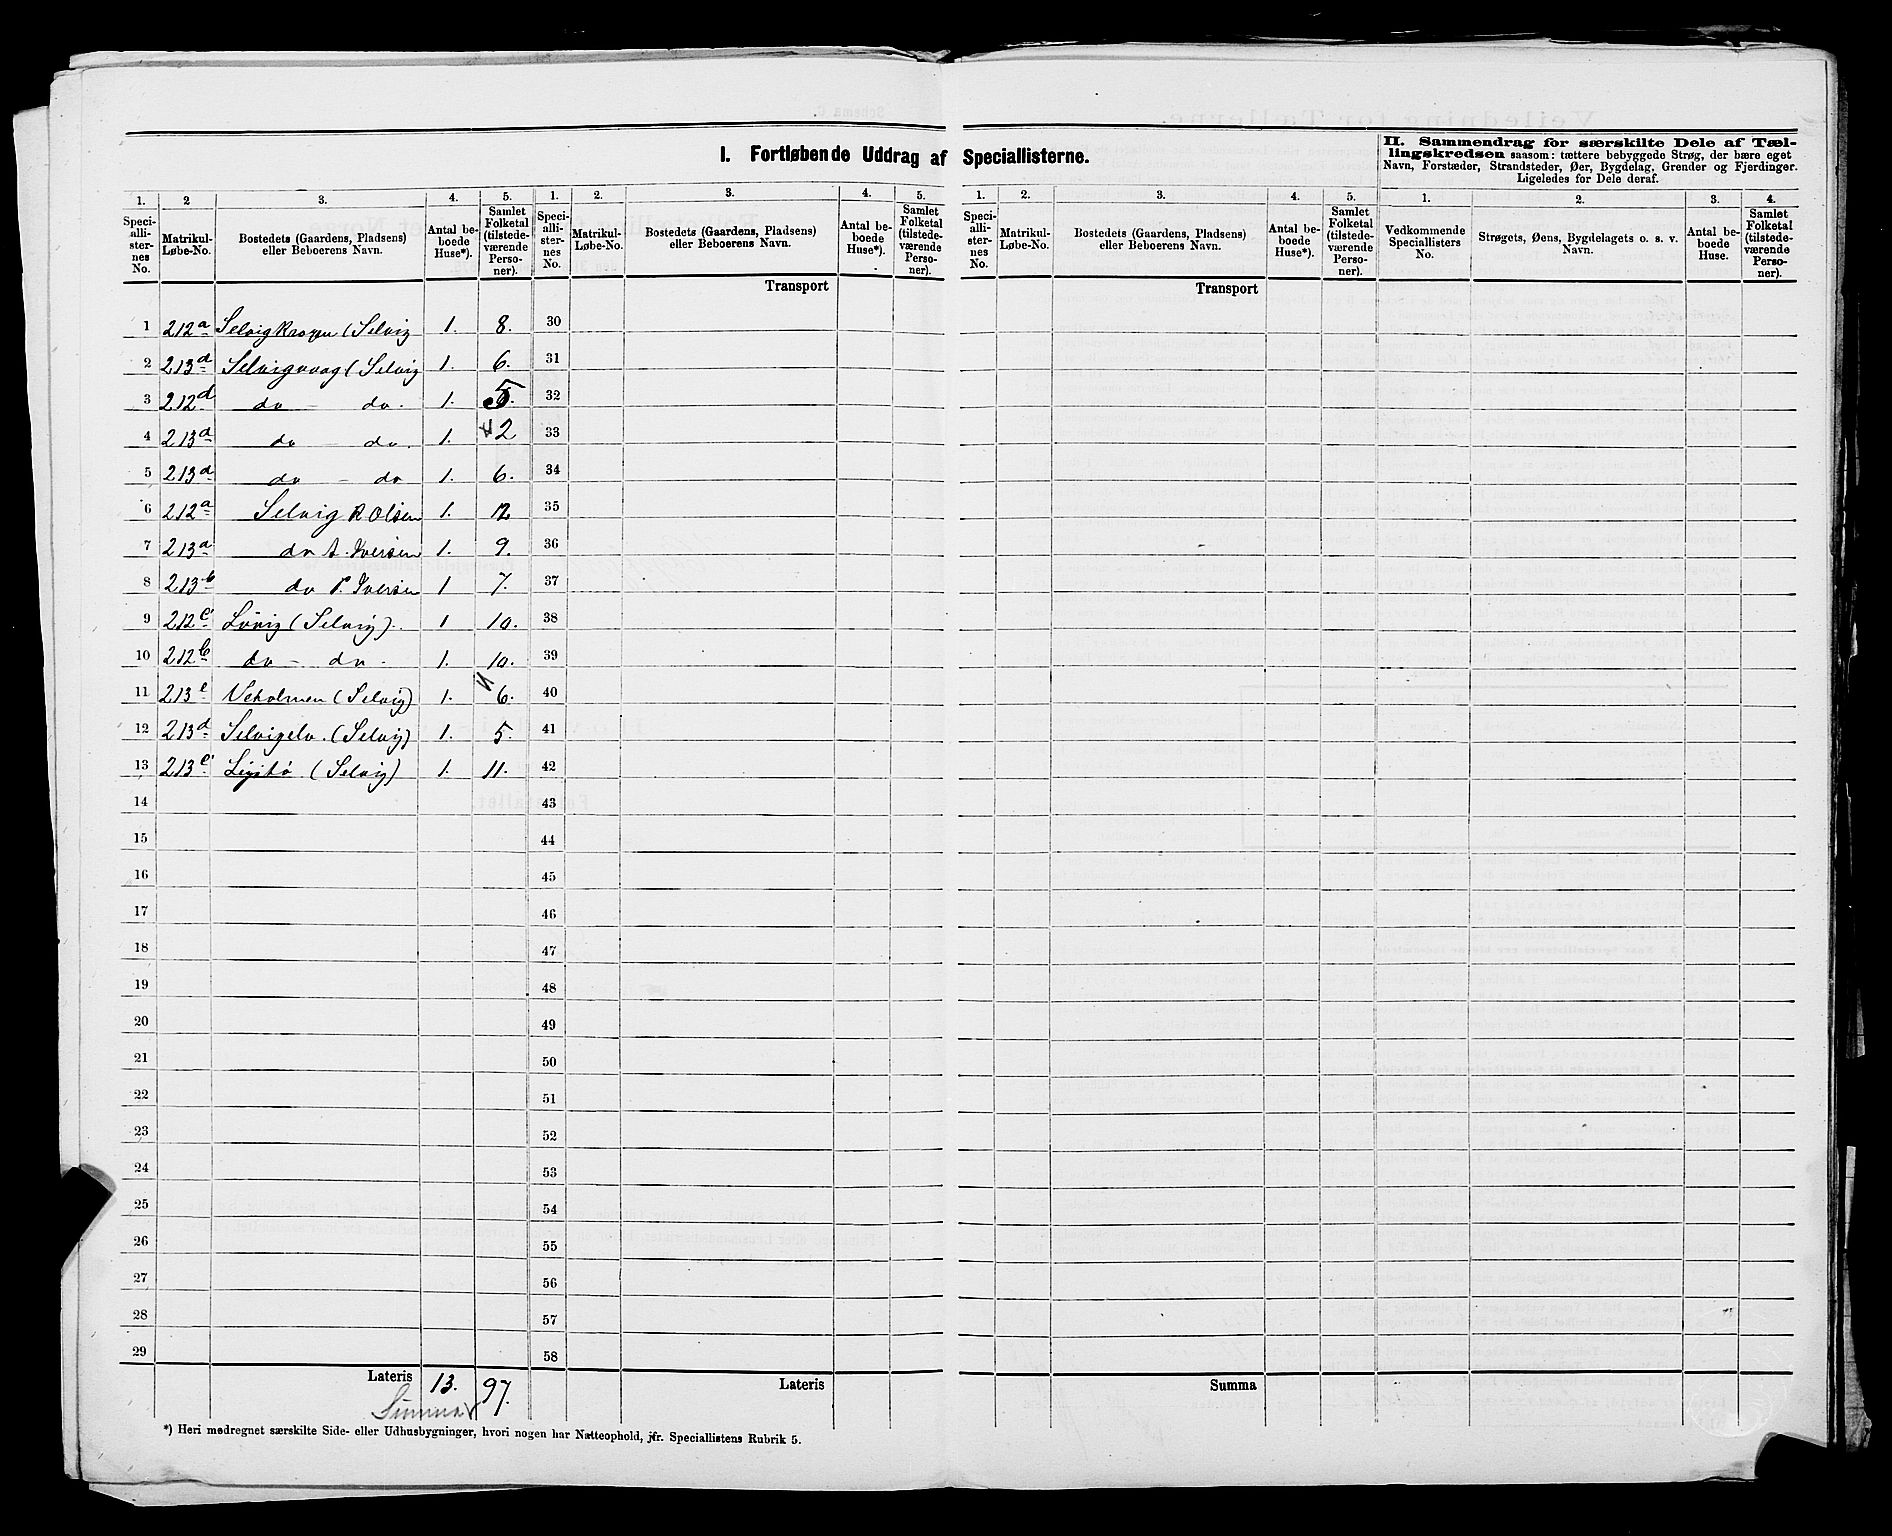 I. Fortløbende Uddrag af Speciallisterne.
II. Sammendrag for særskilte Dele af Tæl-
lingskredsen saasom: tættere bebyggede Strøg, der bære eget
Navn, Forstæder, Strandsteder, Øer, Bygdelag, Grender og Fjerdinger.
Ligeledes for Dele deraf.
1. 2 3. 4. 5. 1. 2. 3. 4. 5. 1. 2. 3. 4. 5. 1. 2. 3. 4.
Speci-allister-nes No. Matrikul-Løbe-No. Bostedets (Gaardens, Pladsens) eller Beboerens Navn. Antal be-boede Huse*). Samlet Folketal (tilstede-værende Perso-ner).
Speci-allister-nes No. Matrikul-Løbe-No. Bostedets (Gaardens, Pladsens) eller Beboerens Navn. Antal be-boede Huse*). Samlet Folketal (tilstede-værende Perso-ner).
Speci-allister-nes No. Matrikul-Løbe-No. Bostedets (Gaardens, Pladsens) eller Beboerens Navn. Antal be-boede Huse*). Samlet Folketal (tilstede-værende Perso-ner).
Vedkommende Speciallisters No. Strøgets, Øens, Bygdelagets o. s. v. Navn. Antal be-boede Huse. Samlet Folketal (tilstede-værende Perso-ner).
Transport Transport
1 212a (Selvig 1. 8. 30
2 213d Selvigvaag (Selvig 1. 6. 31
3 212d do do. 1. 5. 32
4 213d do — do. 1. 2 33
5 213d do — do 1. 6. 34
6 212a Selvig R Olsen 1. 12 35
7 213a do A. Iversen 1. 9. 36
8 213b do P. Iversen 1 7. 37
9 212c (Selvig). 1 10. 38
10 212b do — do. 1. 10. 39
11 213e Veholmen (Selvig) 1. 6. 40
12 213d Selvigelv. (Selvig) 1. 5. 41
13 213c (Selvig) 1. 11. 42
14 43
15 44
16 45
17 46
18 47
19 48
20 49
21 50
22 51
23 52
24 53
25 54
26 55
27 56
28 57
29 58
Lateris 13. 97. Lateris Summa
Summa
*) Heri medregnet særskilte Side- eller Udhusbygninger, hvori nogen har Natteophold, jfr. Speciallistens Rubrik 5.